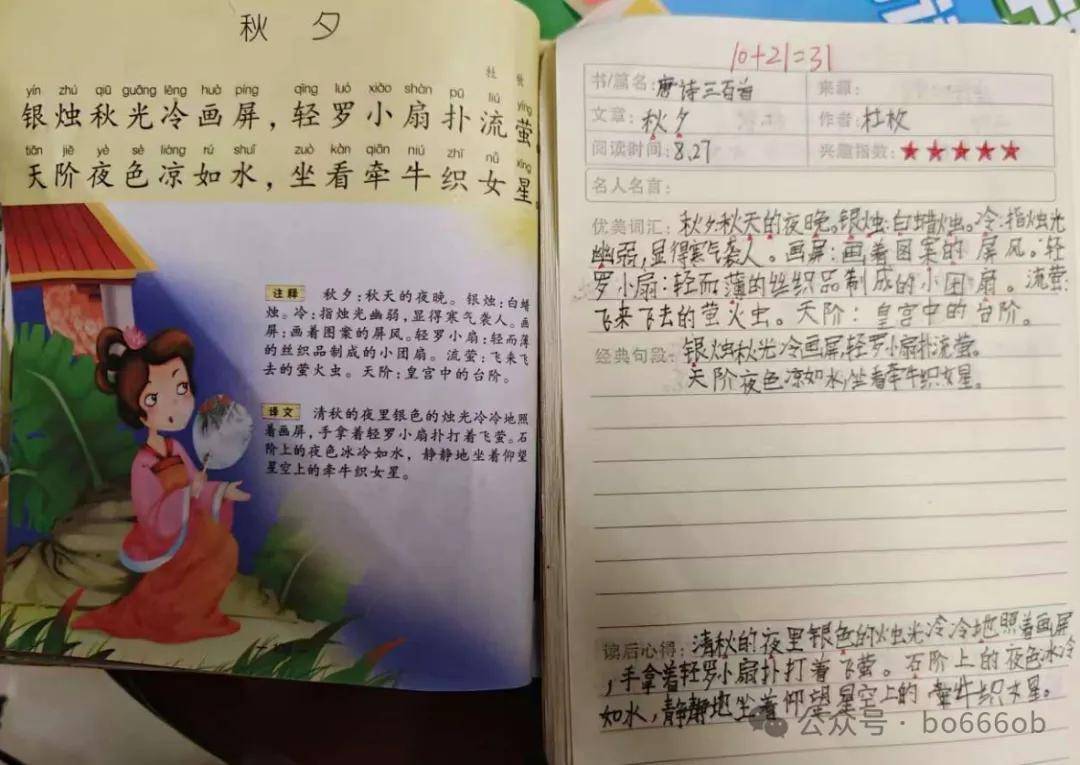 秋 夕
杜 牧
yín zhú qiū guāng lěng huà píng qīng luó xiǎo shàn pū liú yíng
银烛秋光冷画屏，轻罗小扇扑流萤。
tiān jiē yè sè liáng rú shuǐ zuò kàn qiān niú zhī nǚ xīng
天阶夜色凉如水，坐看牵牛织女星。
注释 秋夕：秋天的夜晚。银烛：白蜡
烛。冷：指烛光幽弱，显得寒气袭人。画
屏：画着图案的屏风。轻罗小扇：轻而薄
的丝织品制成的小团扇。流萤：飞来飞
去的萤火虫。天阶：皇宫中的台阶。
译文 清秋的夜里银色的烛光冷冷地照
着画屏，手拿着轻罗小扇扑打着飞萤。石
阶上的夜色冰冷如水，静静地坐着仰望
星空上的牵牛织女星。
10+21=31
书/篇名：唐诗三百首 来源：
文章：秋夕 作者：杜牧
阅读时间：8.27 兴趣指数：★★★★★
名人名言：
优美词汇：秋夕：秋天的夜晚。银烛：白蜡烛。冷：指烛光
幽弱，显得寒气袭人。画屏：画着图案的屏风。轻
罗小扇：轻而薄的丝织品制成的小团扇。流萤：
飞来飞去的萤火虫。天阶：皇宫中的台阶。
经典句段：银烛秋光冷画屏，轻罗小扇扑流萤。
天阶夜色凉如水，坐看牵牛织女星。
读后心得：清秋的夜里银色的烛光冷冷地照着画屏
，手拿着轻罗小扇扑打着飞萤。石阶上的夜色冰冷
如水，静静地坐着仰望星空上的牵牛织女星。
公众号·bo666ob